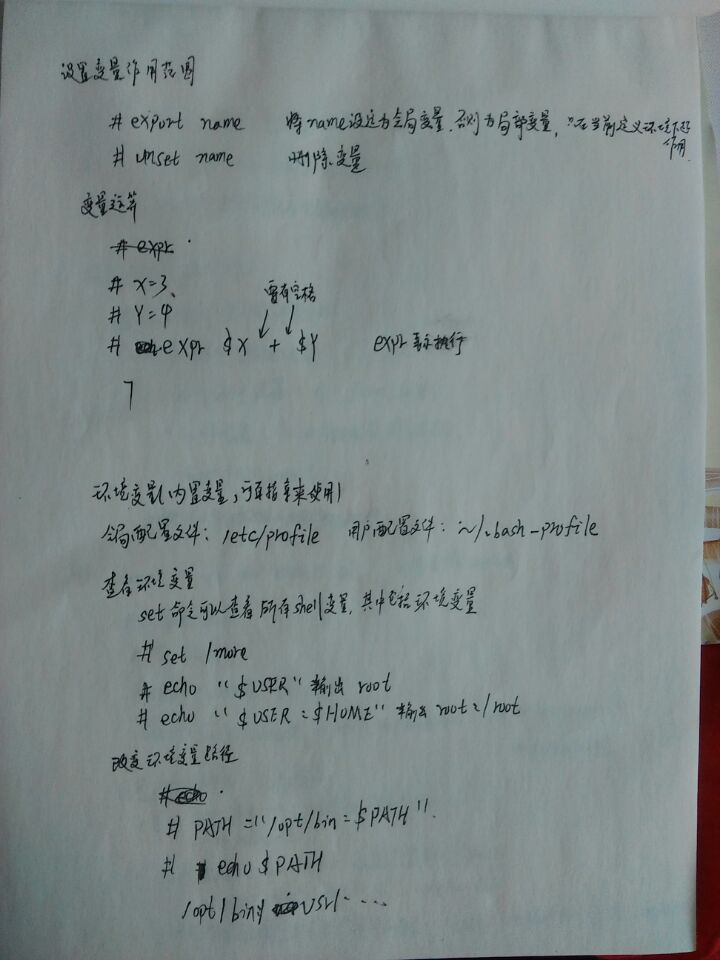 设置变量作用范围
# export name 将name设定为全局变量，否则为局部变量，只在当前定义环境下起作用
# unset name 删除变量
变量运算
# expr
# X=3、
# Y=4
需有空格
# expr $X + $Y expr 表示执行
7
环境变量(内置变量，可直接拿来使用)
全局配置文件：/etc/profile 用户配置文件：~/.bash-profile
查看环境变量
set 命令可以查看所有shell变量，其中包括环境变量
# set /more
# echo "$USER" 输出 root
# echo "$USER : $HOME" 输出 root:/root
改变环境变量路径
# echo
# PATH="/opt/bin:$PATH".
# echo $PATH
/opt/bin: usr/....